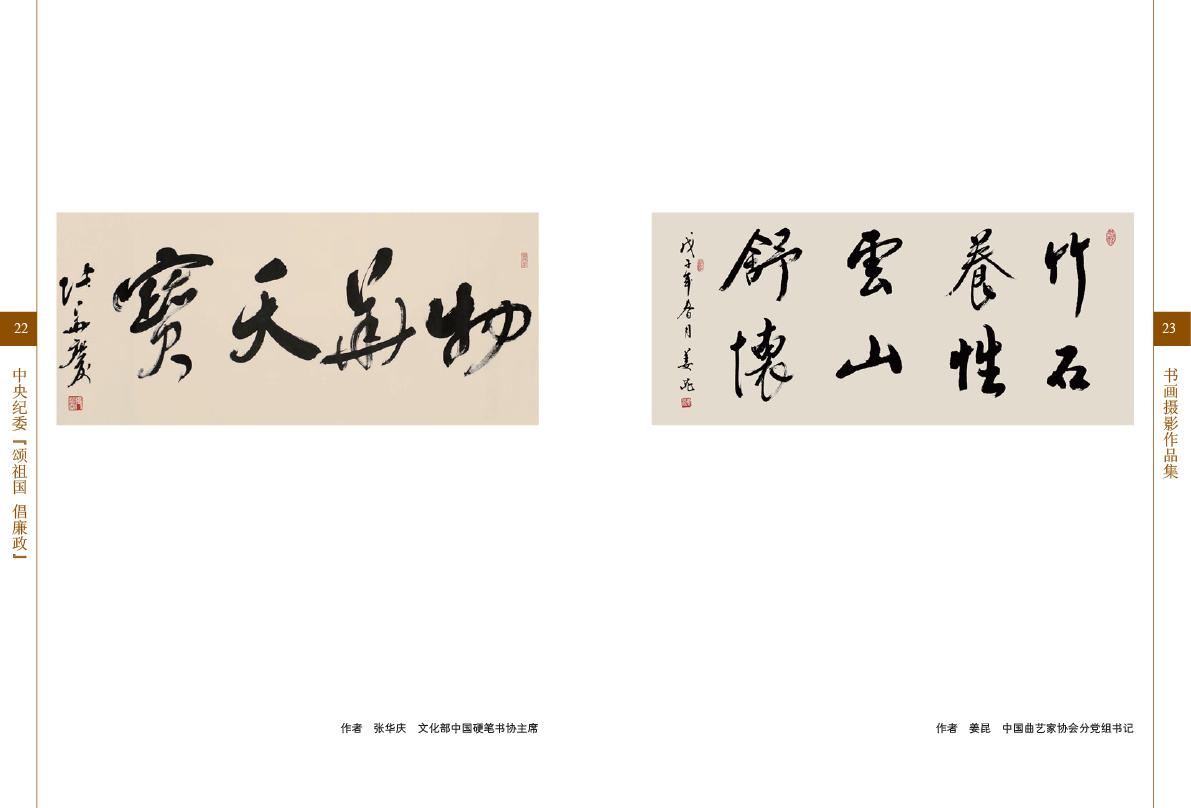 22
中央纪委『颂祖国 倡廉政』
物華天寶
張華慶
作者 张华庆 文化部中国硬笔书协主席
竹石
養性
雲山
舒懷
戊子年春月姜昆
作者 姜昆 中国曲艺家协会分党组书记
23
书画摄影作品集